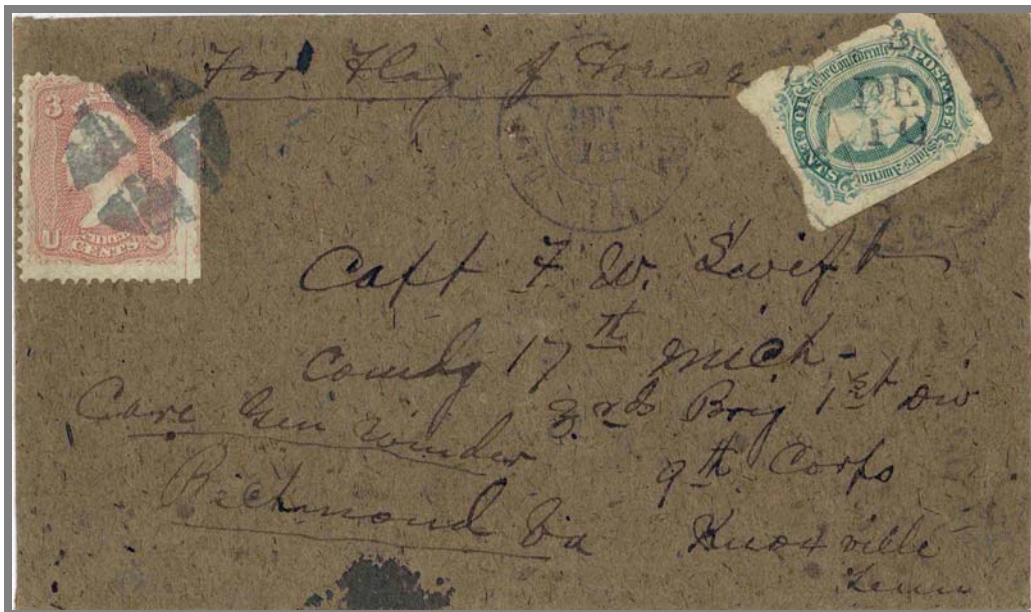 For Flag of Truce
3
U S
CENTS
TEN CENTS POSTAGE
The Confederate States of America
DEC
10
Capt F. W. Swift
Comdg 17th Mich.
3rd Brig 1st Div
9th Corps
Knoxville
Tenn
Care Gen Winder
Richmond Va